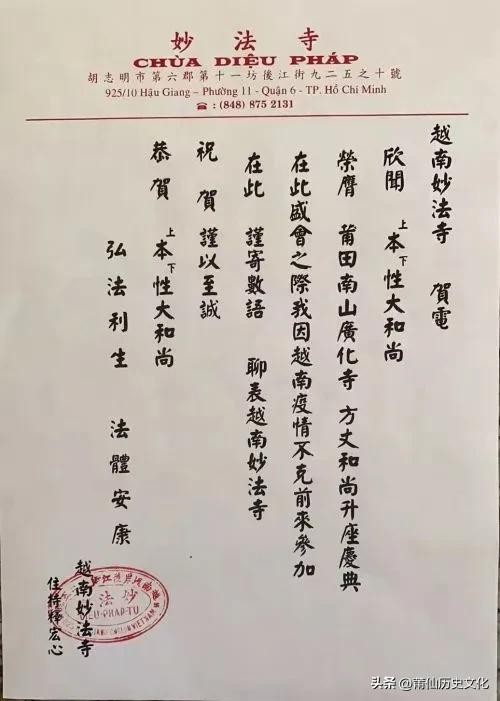 妙法寺
CHÙA DIỆU PHÁP
胡志明市第六郡第十一坊後江街九二五之十號
925/10 Hậu Giang - Phường 11 - Quận 6 - TP. Hồ Chí Minh
☎ : (848) 875 2131
越南妙法寺 賀電
欣聞 上本下性大和尚
榮膺 莆田南山廣化寺 方丈和尚升座慶典
在此盛會之際我因越南疫情不克前來參加
在此 謹寄數語 聊表越南妙法寺
祝賀 謹以至誠
恭賀 上本下性大和尚
弘法利生 法體安康
越南妙法寺
住持釋宏心
妙法
DIEU-PHAP-TU
VIETNAM
头条 @莆仙历史文化